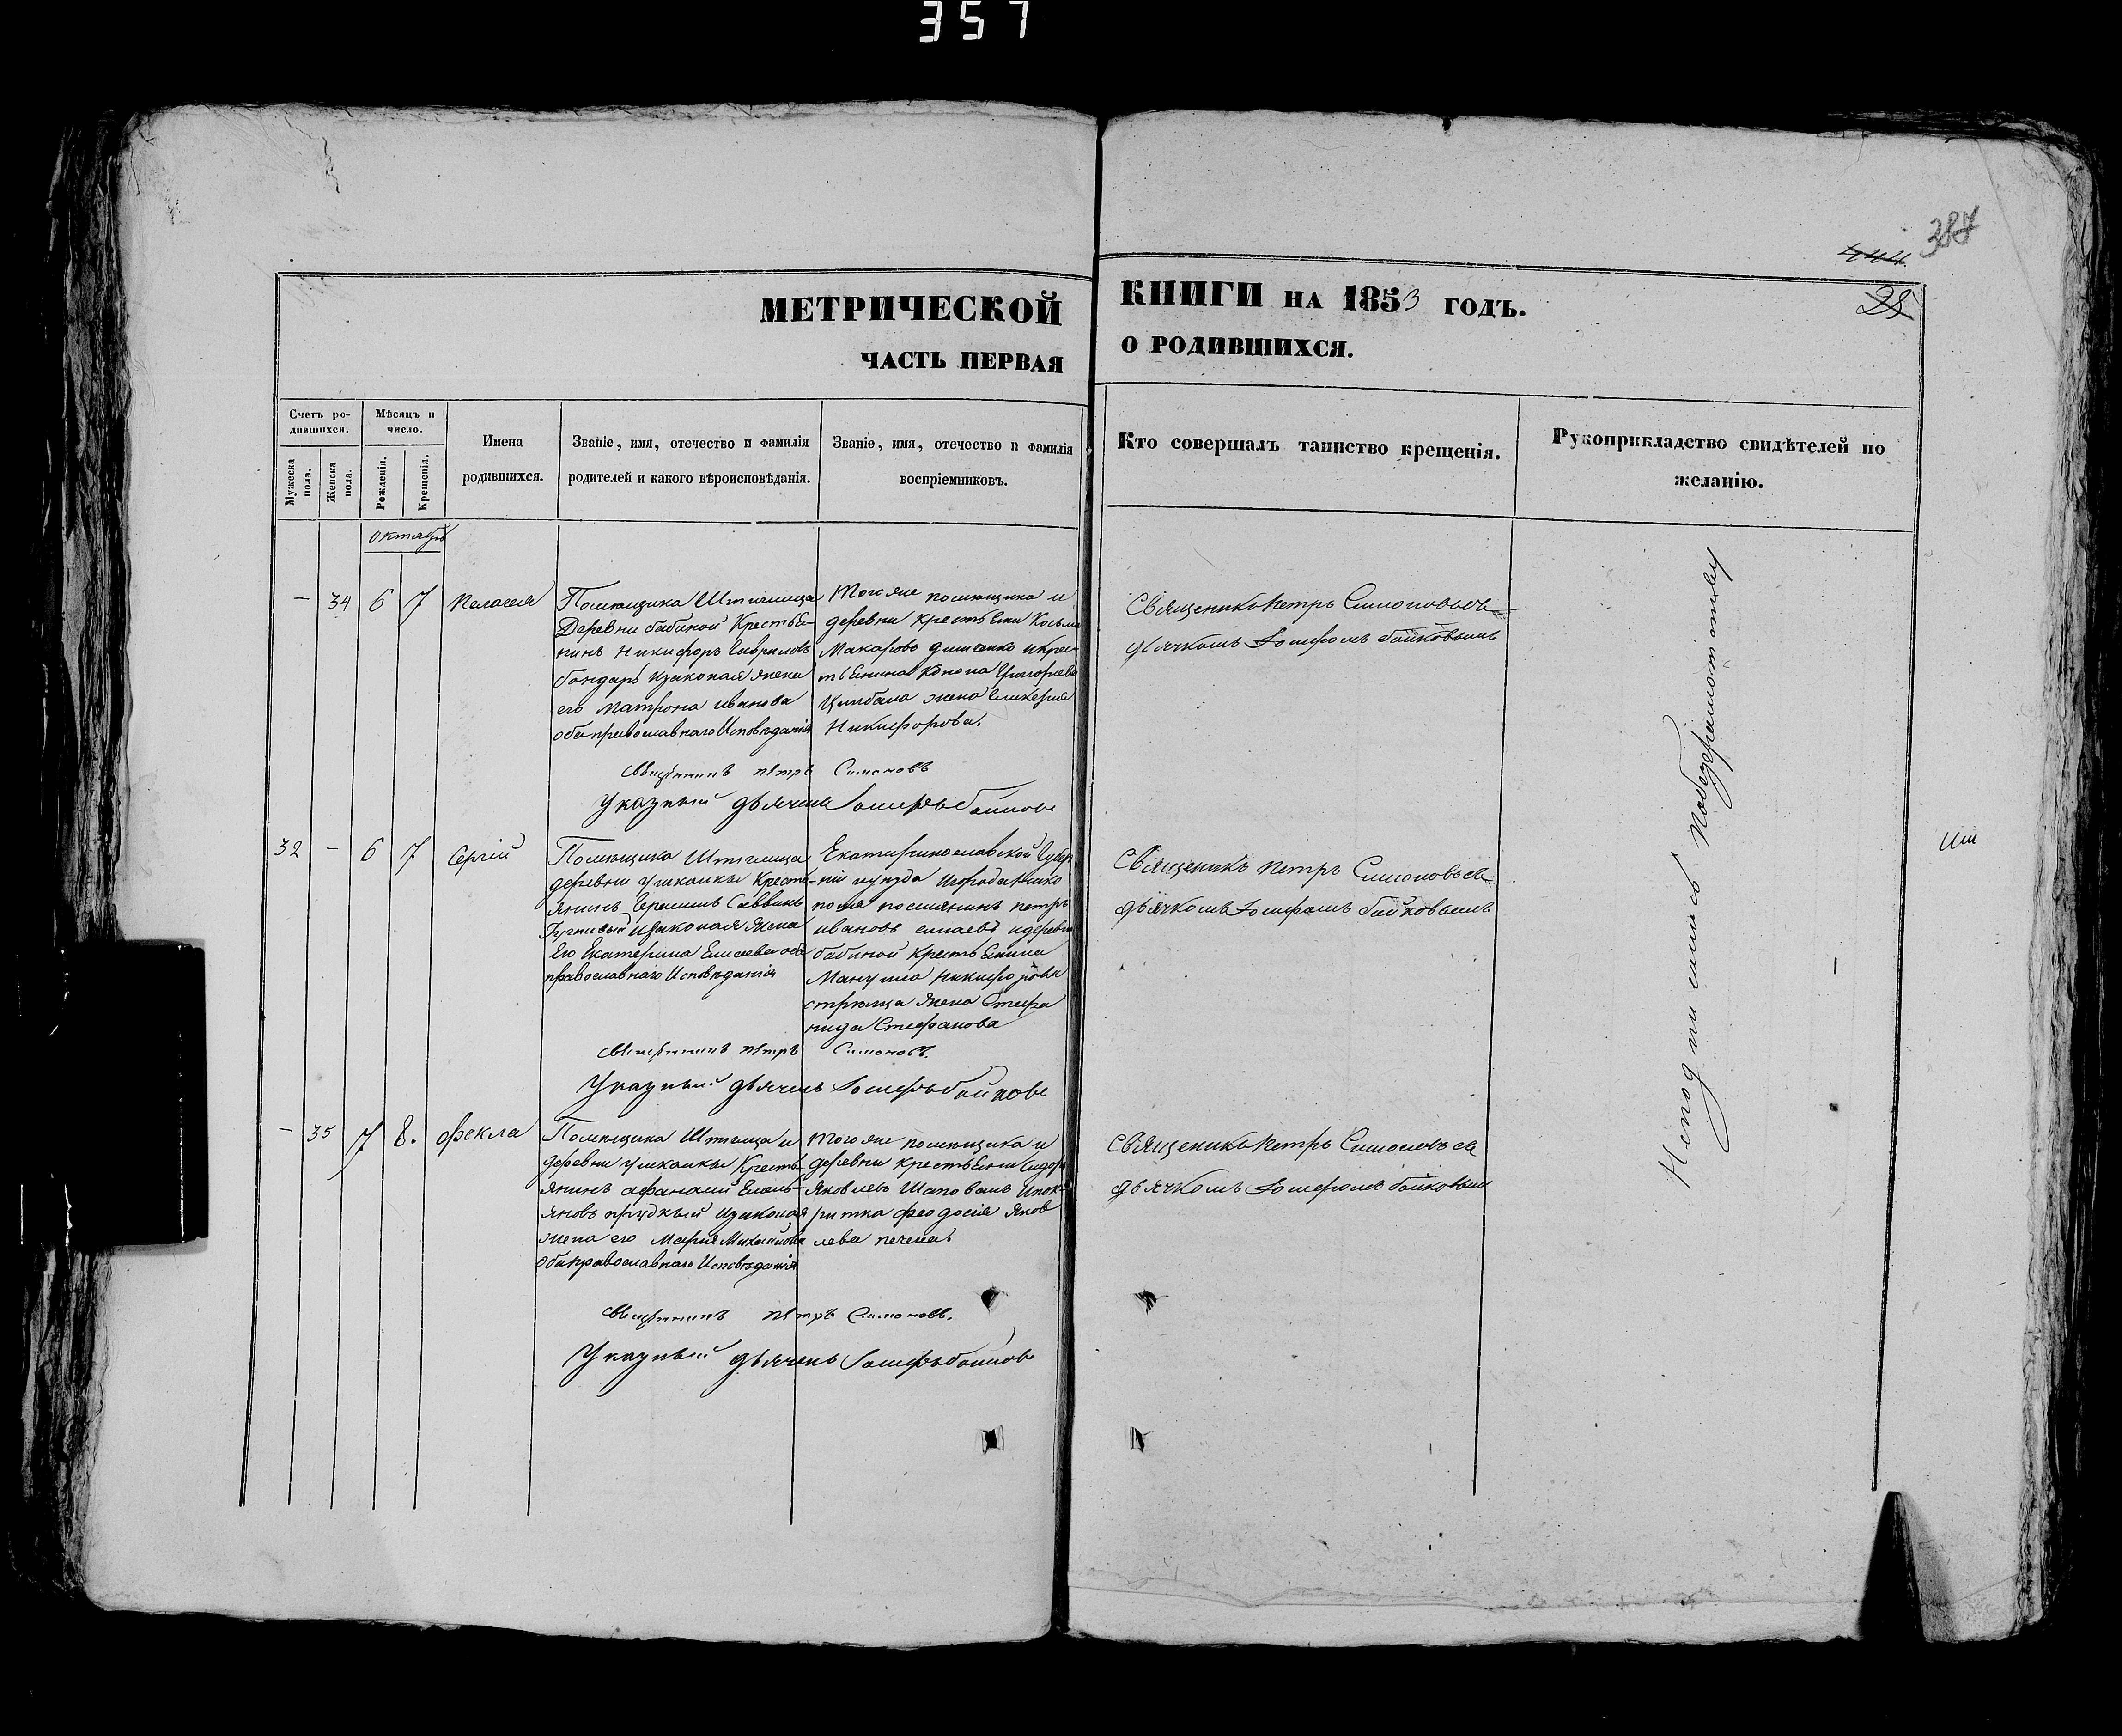 357
387
444
28
МЕТРИЧЕСКОЙ
КНИГИ НА 1853 ГОДЪ.
ЧАСТЬ ПЕРВАЯ
О РОДИВШИХСЯ.
Счетъ ро-
дившихся.
Мужеска пола.
Женска пола.
Мѣсяцъ и
число.
Рожденія.
Крещенія.
Имена
родившихся.
Званіе, имя, отечество и фамилія
родителей и какого вѣроисповѣданія.
Званіе, имя, отечество и фамилія
воспріемниковъ.
Кто совершалъ таинство крещенія.
Рукоприкладство свидѣтелей по
желанію.
октябрь
— 34 6 7 Пелагея
Помѣщика
Деревни бабиной Крестья-
нинъ Никифоръ Гавриловъ
бондарь изаконая жена
его Матрона иванова
оба православнаго Исповѣданія
Того же помѣщика и
деревни Крестьянин Косьма
Макаровъ икрес-
тьянина Конона Григорьева
Цымбала жена Гликерия
Никифорова.
Священикъ Петръ Симоновъ съ
дьячкомъ Іосифомъ байковымъ
Священникъ петръ Симоновъ
Указный дьячекъ Іосифъ байковъ
32 — 6 7 Сергій
Помѣщика
деревни Кресть-
янинъ Герасимъ Саввинъ
изаконая жена
Его Екатерина Елисеева оба
православнаго Исповѣданія
Екатеринославской Губер
ніи иуезда Игорода Нико
поля поселянинъ петръ
ивановъ идеревни
бабиной Крестьянина
Мануила Никифорова
жена Стефа
нида Стефанова
Священикъ Петръ Симоновъ съ
дьячкомъ Іосифомъ байковымъ
Священникъ петръ Симоновъ.
Указный дьячекъ Іосифъ байковъ
— 35 7 8. Фекла
Помѣщика
деревни Кресть-
янинъ афанасій Емель-
яновъ изаконая
жена его Мария Михайлова
оба православнаго Исповѣданія
Того же помѣщика и
деревни крестьянин Сидоръ
Яковлевъ Шаповалъ
феодосія Яков
лева
Священикъ Петръ Симоновъ съ
дьячкомъ Іосифомъ байковымъ
Священникъ петръ Симоновъ.
Указный дьячекъ Іосифъ байковъ